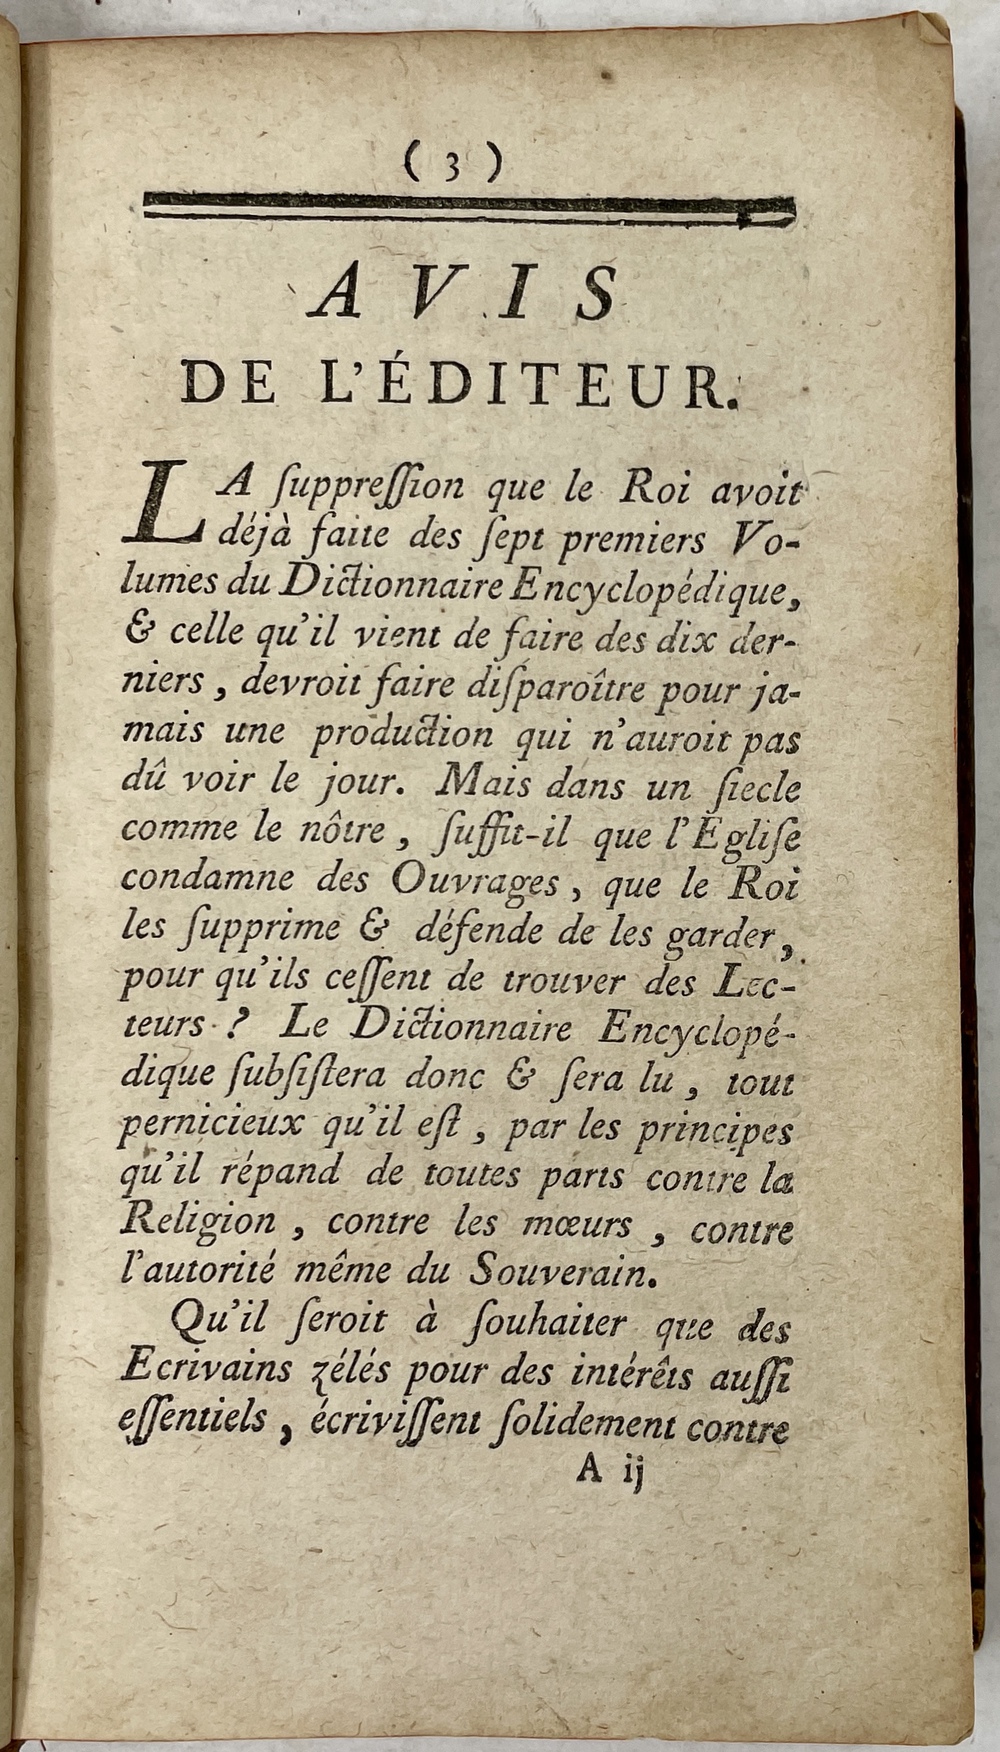 ( 3 )
AVIS
DE L'ÉDITEUR.
LA ſuppreſſion que le Roi avoit
déjà faite des ſept premiers Vo-
lumes du Dictionnaire Encyclopédique,
& celle qu'il vient de faire des dix der-
niers, devroit faire diſparoître pour ja-
mais une production qui n'auroit pas
dû voir le jour. Mais dans un ſiecle
comme le nôtre, ſuffit-il que l'Egliſe
condamne des Ouvrages, que le Roi
les ſupprime & défende de les garder,
pour qu'ils ceſſent de trouver des Lec-
teurs ? Le Dictionnaire Encyclopé-
dique ſubſiſtera donc & ſera lu, tout
pernicieux qu'il eſt, par les principes
qu'il répand de toutes parts contre la
Religion, contre les mœurs, contre
l'autorité même du Souverain.
Qu'il ſeroit à ſouhaiter que des
Ecrivains zélés pour des intérêts auſſi
eſſentiels, écriviſſent ſolidement contre
A ij